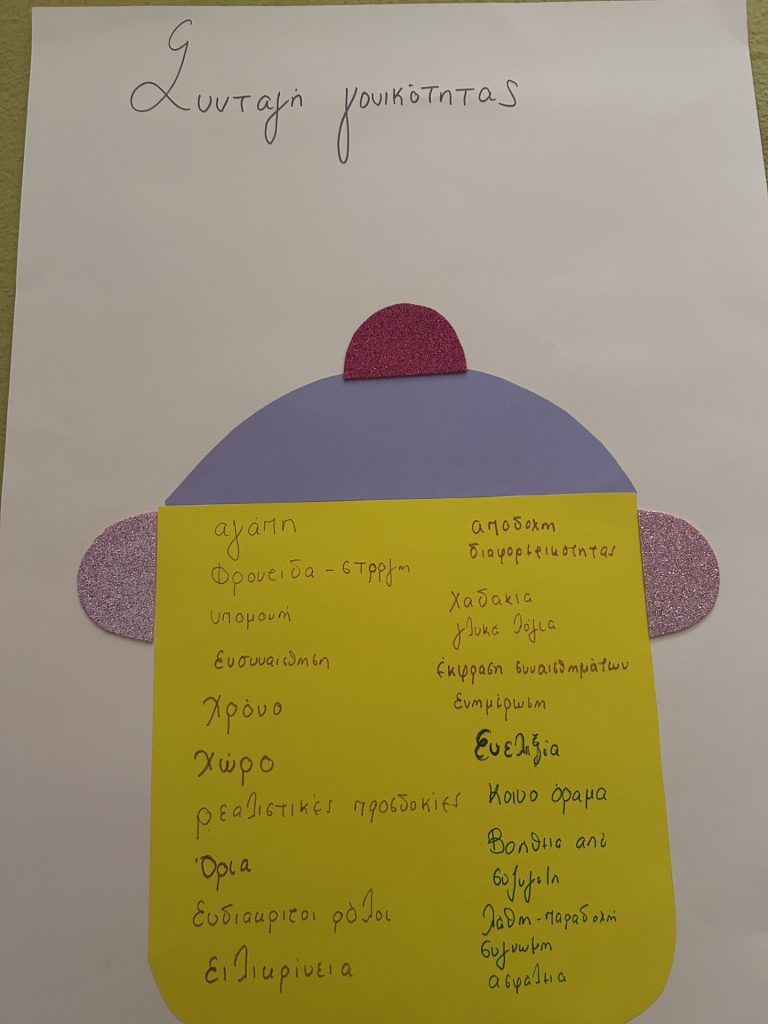 Συνταγή γονικότητας
αγάπη
Φρονείδα - στρργη
υπομονή
ευσυναισθηση
Χρόνο
Χώρο
ρεαλιστικές προσδοκίες
Όρια
Ευδιακριτοι ρόλοι
ειλικρίνεια
αποδοχη
διαφορετικοτητας
Χαδακια
γλυκα λόγια
έκφραση συναισθημάτων
Ενημέρωση
Ευελιξία
Κοινο όραμα
Βοήθεια από
συζυγο/η
λαθη-παραδοχή
συγνωμη
ασφαλεια